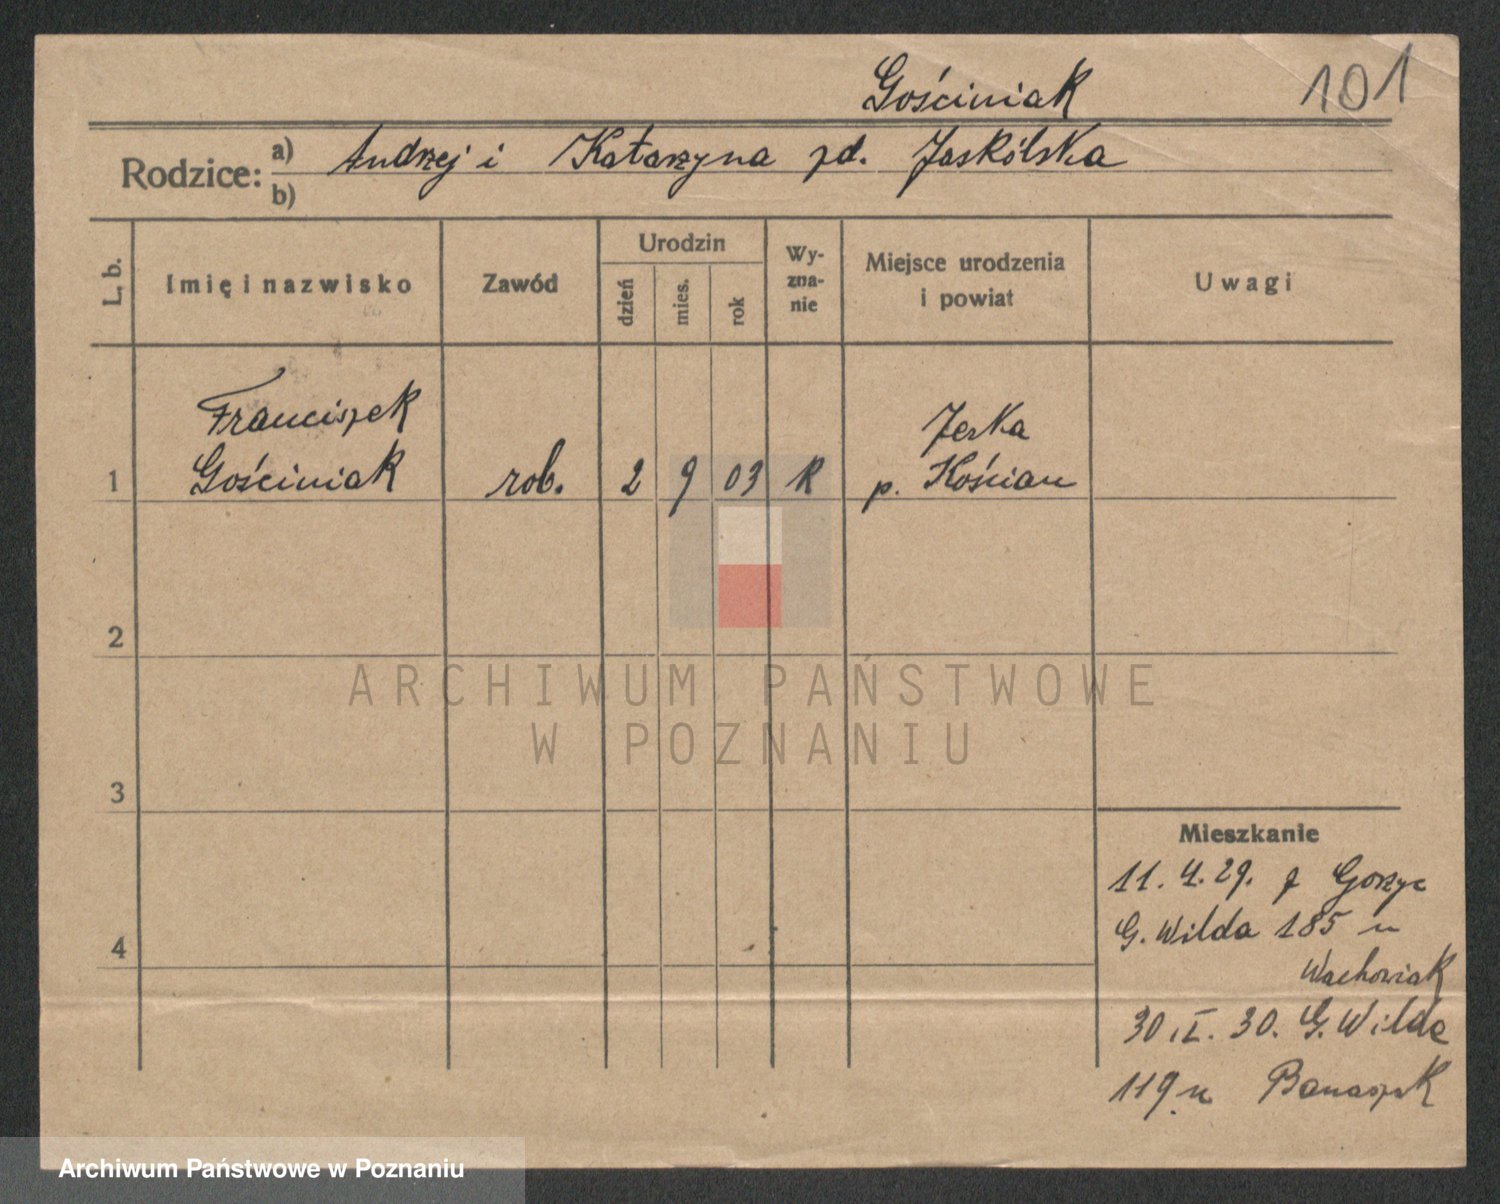 Gościniak
101
Rodzice: a) Andrzej i Katarzyna zd. Jaskólska
b)
L. b.
Imię i nazwisko
Zawód
Urodzin
dzień
mies.
rok
Wy-
zna-
nie
Miejsce urodzenia
i powiat
Uwagi
Franciszek
1 Gościniak rob. 2 9 03 R
Jerka
p. Kościan
2
3
4
ARCHIWUM PAŃSTWOWE
W POZNANIU
Mieszkanie
11.4.29. z Gorzyc
G. Wilda 185 u
Wachowiak
30.I.30. G. Wilda
119 u Banaszak
Archiwum Państwowe w Poznaniu